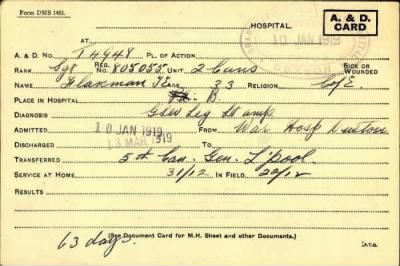 Form DMS 1401.
HOSPITAL.
A. & D. CARD
AT
10 JAN 1919
A. & D. No. T4948 PL. OF ACTION
RANK Sgt REG. No. 805055 UNIT 2 Cans SICK OR WOUNDED
NAME AGE 33 RELIGION C of E
PLACE IN HOSPITAL B.
DIAGNOSIS GSW Leg St amp.
ADMITTED 10 JAN 1919 FROM War Hosp
DISCHARGED 13 MAR 1919 TO
TRANSFERRED 5th Can. Gen. L'pool.
SERVICE AT HOME 31/12 IN FIELD 22/12
RESULTS
63 days.
(See Document Card for M.H. Sheet and other Documents.)